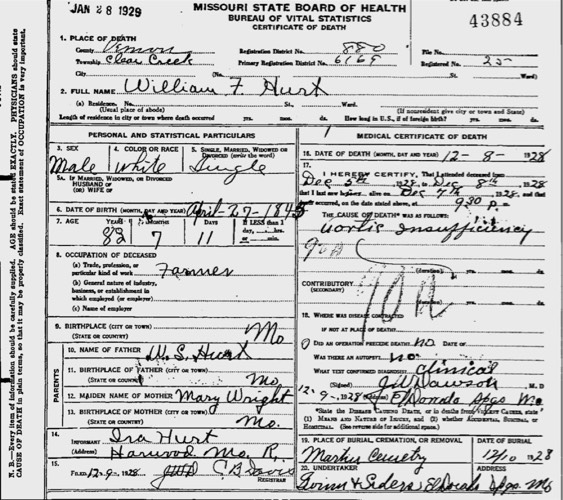 JAN 28 1929
MISSOURI STATE BOARD OF HEALTH
BUREAU OF VITAL STATISTICS
CERTIFICATE OF DEATH
43884
1. PLACE OF DEATH
County Vernon Registration District No. 880 File No.
Township Clear Creek Primary Registration District No. 6169 Registered No. 25
City (No. St. Ward)
2. FULL NAME William F. Hurt
(a) Residence. No. St., Ward.
(Usual place of abode) (If nonresident give city or town and State)
Length of residence in city or town where death occurred yrs. mos. ds. How long in U.S., if of foreign birth? yrs. mos. ds.
PERSONAL AND STATISTICAL PARTICULARS
3. SEX 4. COLOR OR RACE 5. SINGLE, MARRIED, WIDOWED OR DIVORCED (write the word)
Male White Single
5A. IF MARRIED, WIDOWED, OR DIVORCED
HUSBAND OF
(OR) WIFE OF
6. DATE OF BIRTH (MONTH, DAY AND YEAR) April-27-1845
7. AGE YEARS MONTHS DAYS If LESS than 1 day, hrs. or min.
7 11
8. OCCUPATION OF DECEASED
(a) Trade, profession, or particular kind of work Farmer
(b) General nature of industry, business, or establishment in which employed (or employer)
(c) Name of employer
9. BIRTHPLACE (CITY OR TOWN)
(STATE OR COUNTRY) Mo
PARENTS
10. NAME OF FATHER W. S. Hurt
11. BIRTHPLACE OF FATHER (CITY OR TOWN)
(STATE OR COUNTRY) Mo.
12. MAIDEN NAME OF MOTHER Mary Wright
13. BIRTHPLACE OF MOTHER (CITY OR TOWN)
(STATE OR COUNTRY) Mo.
14. INFORMANT Ira Hurt
(Address) Harwood Mo. R.
15. FILED 12-9-1928 C B Davis REGISTRAR
MEDICAL CERTIFICATE OF DEATH
16. DATE OF DEATH (MONTH, DAY AND YEAR) 12-8-1928
17. I HEREBY CERTIFY, That I attended deceased from
Dec 5th, 1928, to Dec 8th, 1928
that I last saw h alive on Dec 7th, 1928, and that
death occurred, on the date stated above, at 930 P.
THE CAUSE OF DEATH* WAS AS FOLLOWS:
Aortic Insufficiency
90A
(duration) yrs. mos. ds.
CONTRIBUTORY
(SECONDARY)
(duration) yrs. mos. ds.
18. WHERE WAS DISEASE CONTRACTED
IF NOT AT PLACE OF DEATH?
DID AN OPERATION PRECEDE DEATH? no DATE OF
WAS THERE AN AUTOPSY? no
WHAT TEST CONFIRMED DIAGNOSIS? Clinical
(Signed) Dawson, M. D
12-9-1928 (Address) ElDorado Spgs Mo.
*State the DISEASE CAUSING DEATH, or in deaths from VIOLENT CAUSES, state
(1) MEANS AND NATURE OF INJURY, and (2) whether ACCIDENTAL, SUICIDAL, or
HOMICIDAL. (See reverse side for additional space).
19. PLACE OF BURIAL, CREMATION, OR REMOVAL DATE OF BURIAL
Cemetry 12/10 1928
20. UNDERTAKER ADDRESS
& Siders ElDorado Spgs Mo
N. B.—Every item of information should be carefully supplied. AGE should be stated EXACTLY. PHYSICIANS should state
CAUSE OF DEATH in plain terms, so that it may be properly classified. Exact statement of OCCUPATION is very important.